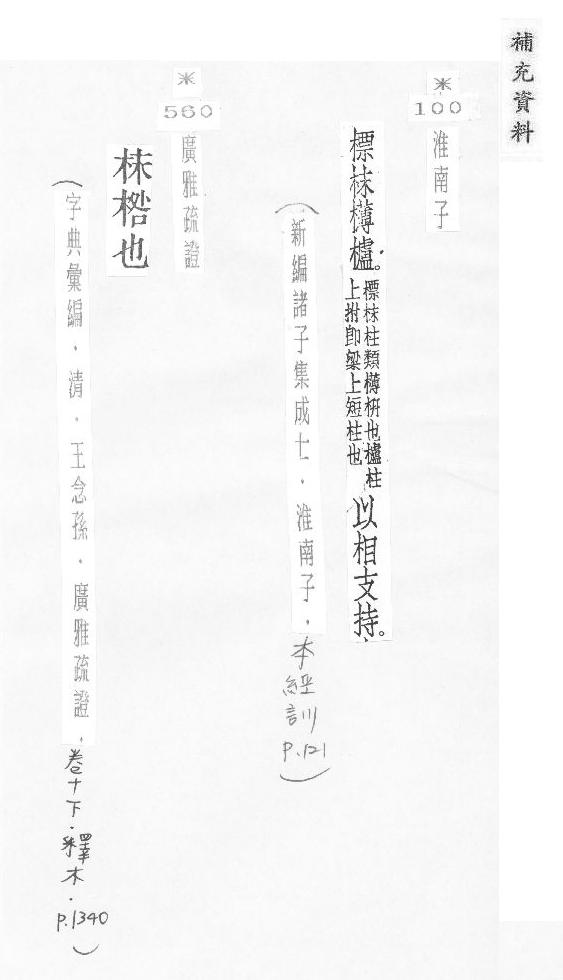 補充資料
※
100
淮南子
標枺欂櫨。
標枺柱類欂枅也櫨柱
上拊即梁上短柱也
以相支持。
(新編諸子集成七．淮南子．本經訓P.121)
※
560
廣雅疏證
枺也
(字典彙編．清．王念孫．廣雅疏證．卷十下．釋木．P.1340)